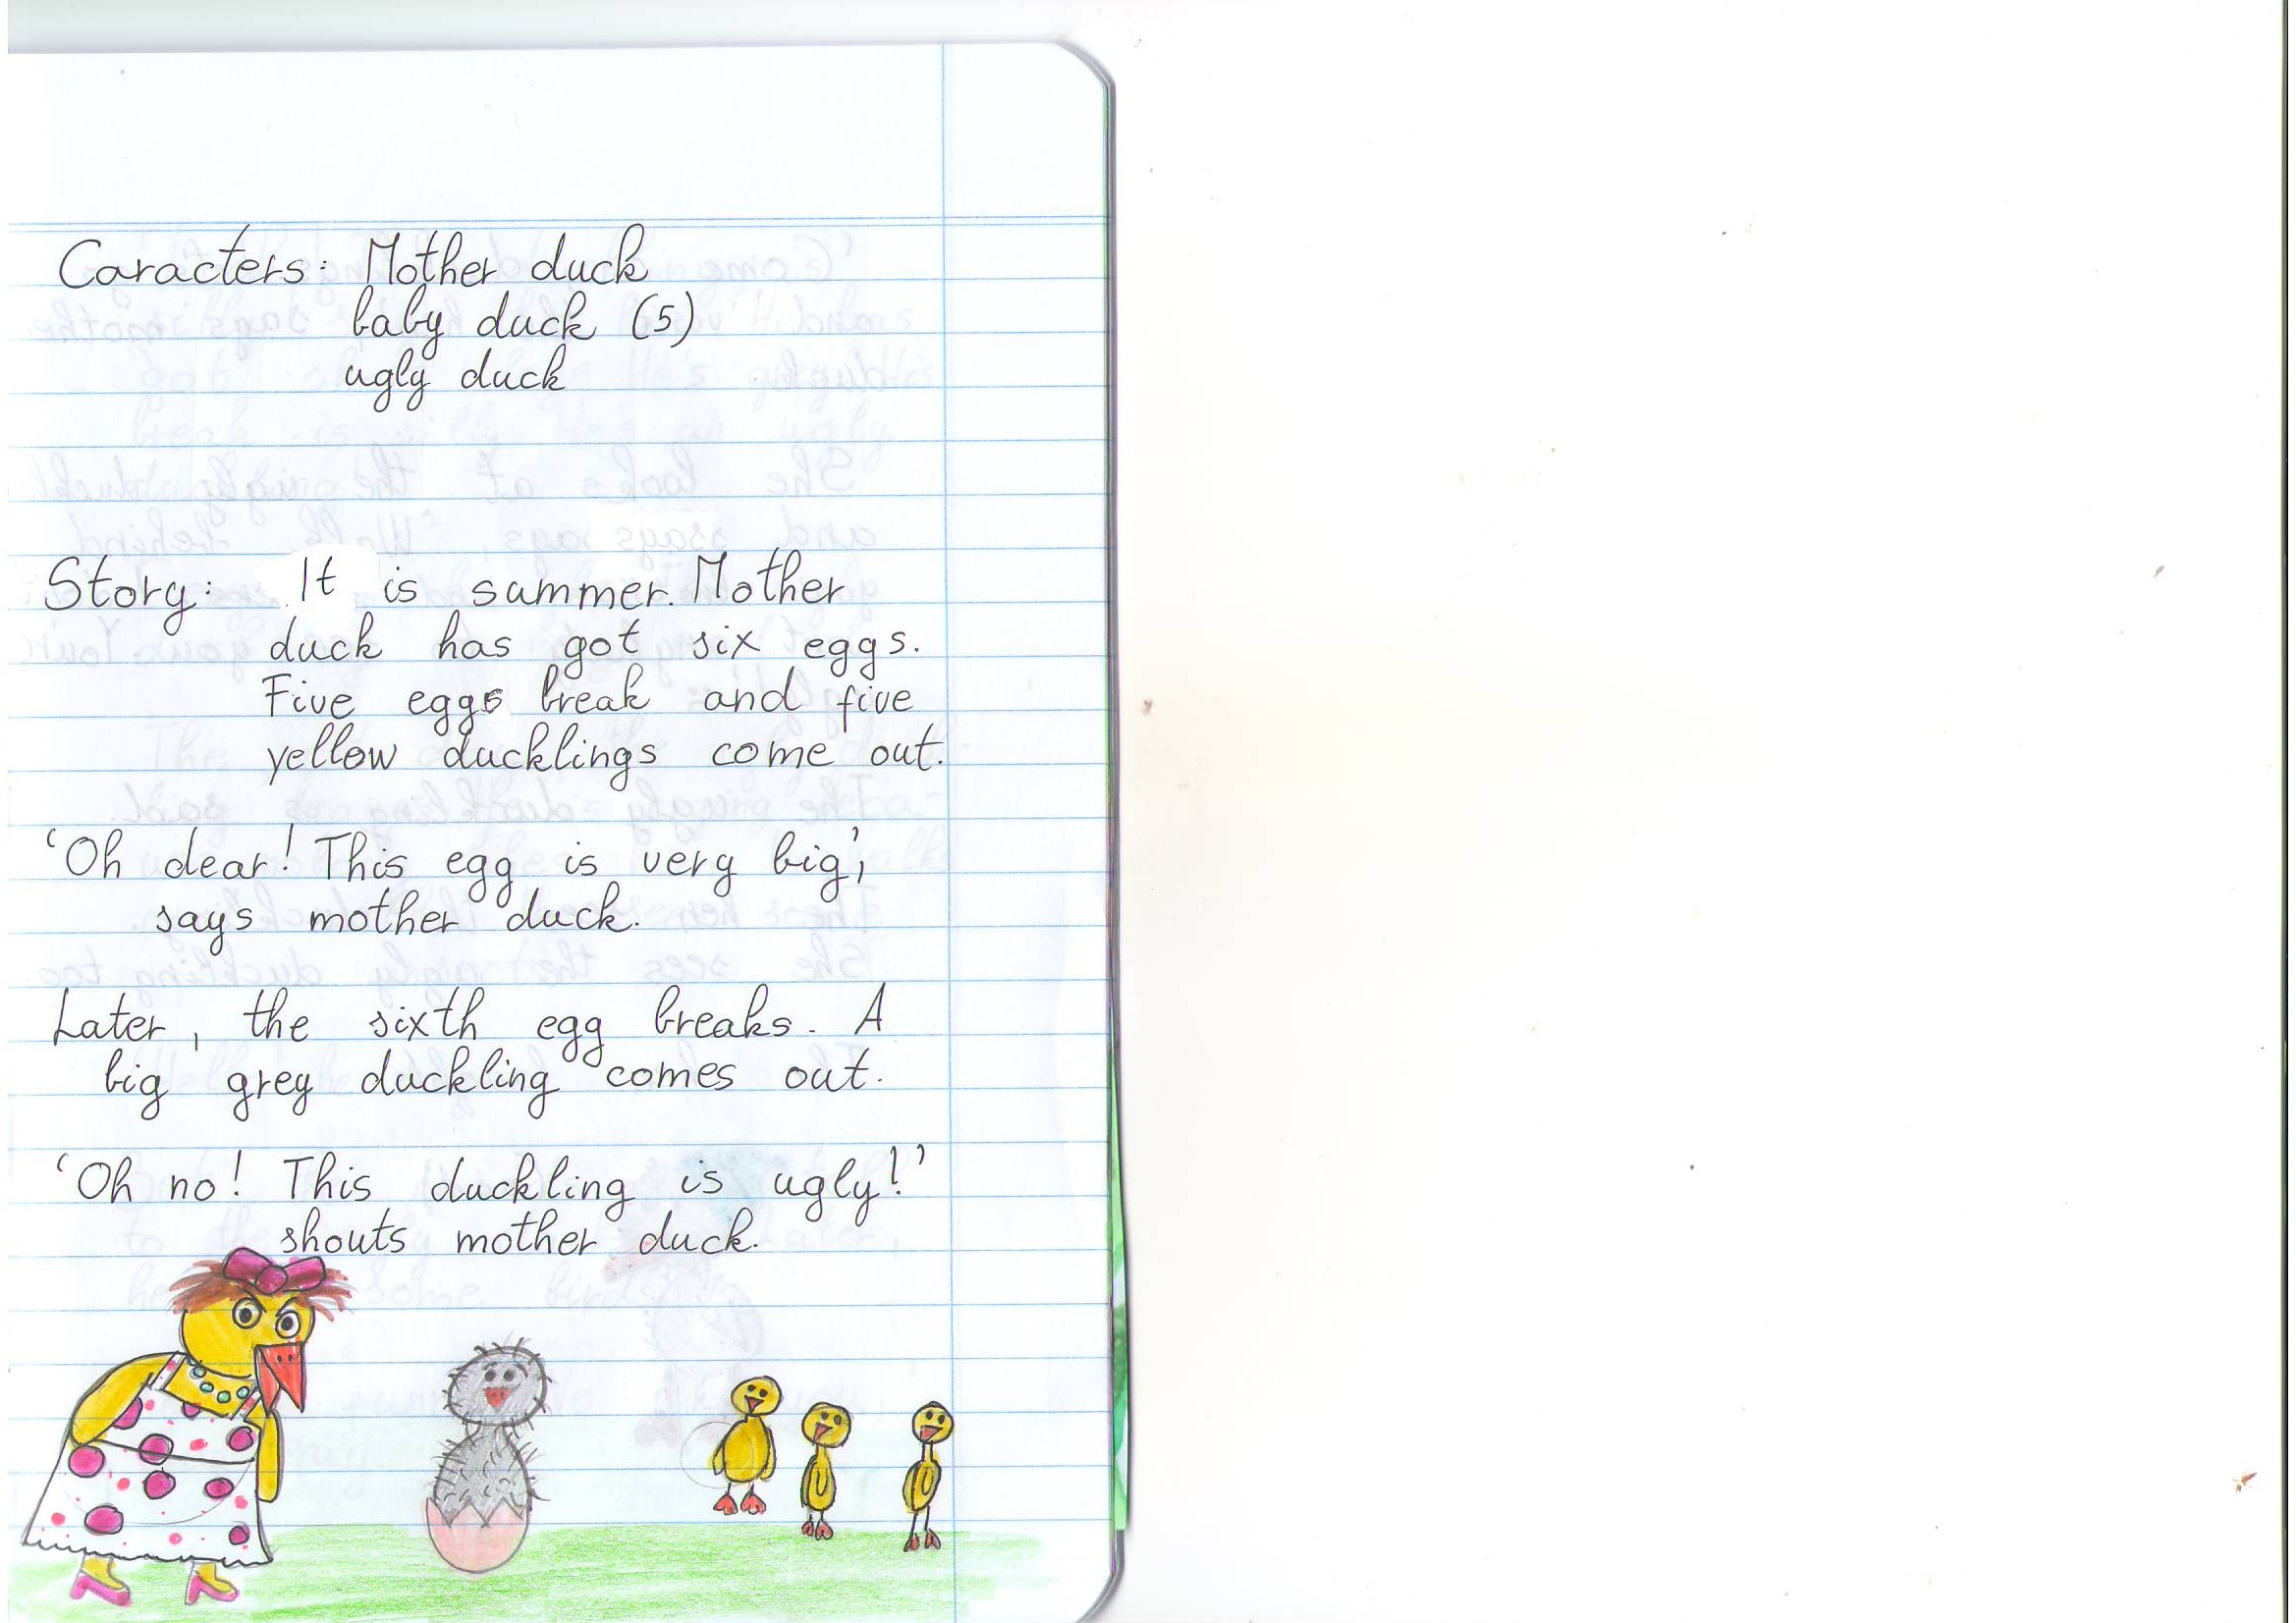 Caracters: Mother duck
baby duck (5)
ugly duck
Story: It is summer. Mother
duck has got six eggs.
Five eggs break and five
yellow ducklings come out.
'Oh dear! This egg is very big',
says mother duck.
Later, the sixth egg breaks. A
big grey duckling comes out.
'Oh no! This duckling is ugly!'
shouts mother duck.